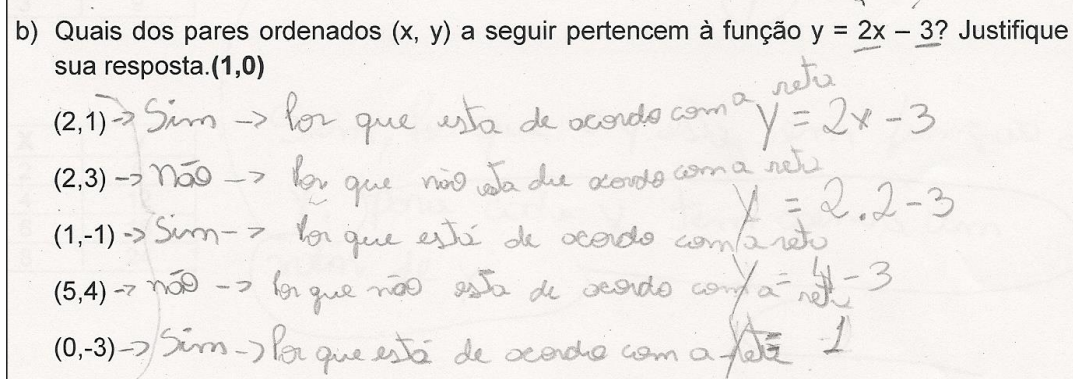 b) Quais dos pares ordenados (x, y) a seguir pertencem à função y = 2x – 3? Justifique
sua resposta.(1,0)
(2,1) -> Sim -> Por que esta de acordo com a reta y = 2x - 3
(2,3) -> não -> Por que não esta de acordo com a reta
y = 2.2-3
(1,-1) -> Sim -> Por que está de acordo com a reta
y = 4 - 3
(5,4) -> não -> Por que não esta de acordo com a reta
(0,-3) -> Sim -> Por que está de acordo com a reta
y = 1